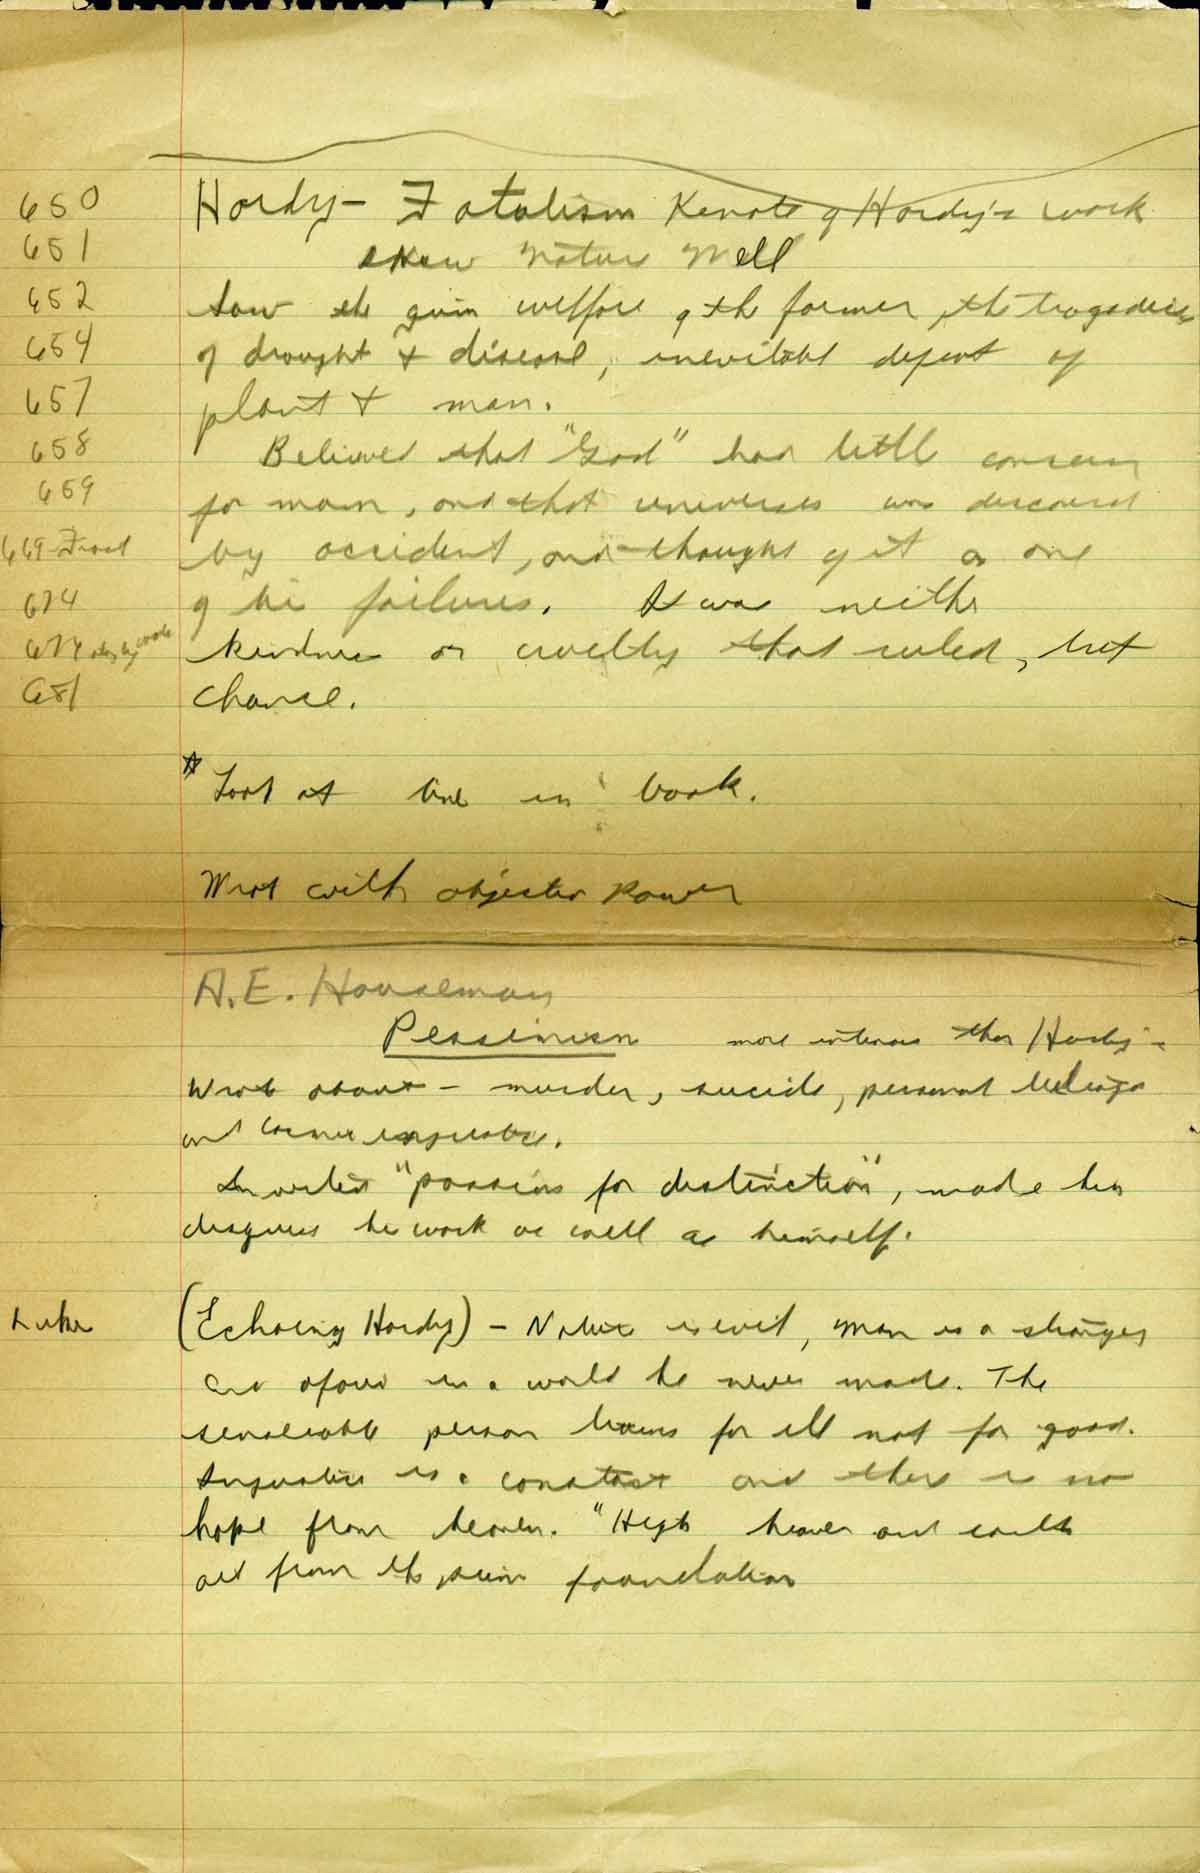 650 Hardy - Fatalism Kenote of Hardy's work
651 Knew Nature Well
652 Saw the grim welfare of the farmer, the tragedies
654 of drought & disease, inevitable defeat of
657 plant & man.
658 Believed that "God" had little concern
659 for man, and that universes was
669 Frost by accident, and thought of it as one
674 of his failures. It was neither
674 kindness or cruelty that ruled, but
681 chance.
* Look at line in book.
Wrot with objective Power
A.E. Houseman
Pessimism more intense than Hardy's
Wrote about - murder, suicide, personal
and
"passion for distinction", made him
disguise his work as well as himself.
Luke (Echoing Hardy) - Nature is evil, Man is a stranger
and afraid in a world he never made. The
person trains for ill not for good.
is a constant and there is no
hope from heaven. "High heaven and earth
ail from the prime foundation